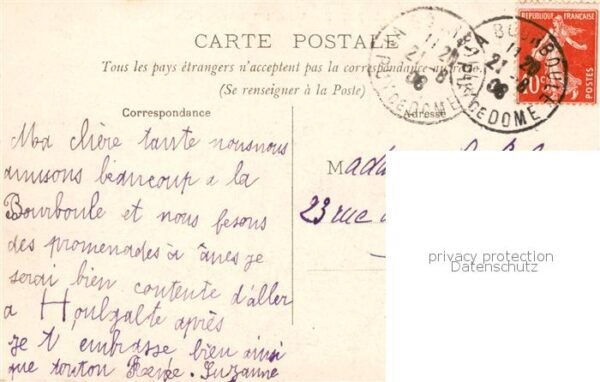 CARTE POSTALE
Tous les pays étrangers n'acceptent pas la correspondance au
(Se renseigner à la Poste)
Correspondance
Adresse
LA BOURBOULE
11 20
21 - 8
08
PUY DE DOME
LA BOURBOULE
11 20
21 - 8
08
PUY DE DOME
REPUBLIQUE FRANÇAISE
10 c
POSTES
Ma chère tante nousnous
amusons beaucoup a la
Bourboule et nous fesons
des promenades à ânes je
serai bien contente d'aller
a Houlgatte après
je t'embrasse bien ainsi
que tonton Suzanne
Mada
23 rue
privacy protection
Datenschutz